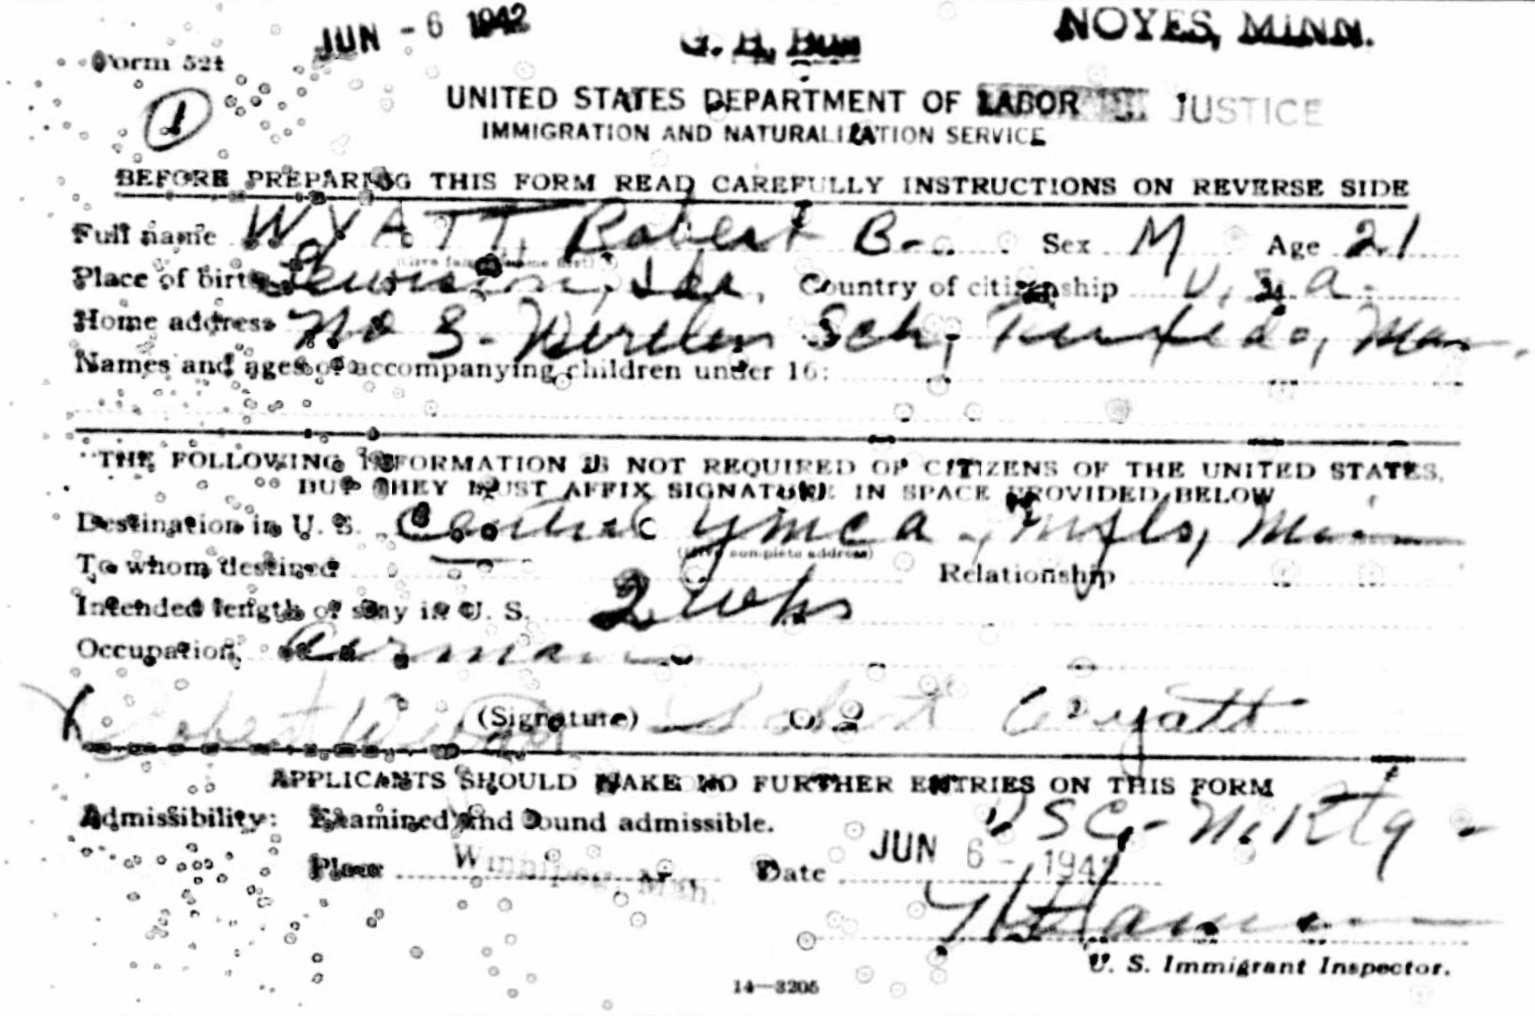 JUN - 6 1942
NOYES, MINN.
Form 521
1
UNITED STATES DEPARTMENT OF LABOR JUSTICE
IMMIGRATION AND NATURALIZATION SERVICE
BEFORE PREPARING THIS FORM READ CAREFULLY INSTRUCTIONS ON REVERSE SIDE
Full name WYATT, Robert B. Sex M Age 21
(Give family name first)
Place of birth Lewiston, Ida, Country of citizenship U.S.A.
Home address No 3 - Wireless Sch, Tuxedo, Man.
Names and ages of accompanying children under 16:
THE FOLLOWING INFORMATION IS NOT REQUIRED OF CITIZENS OF THE UNITED STATES,
BUT THEY MUST AFFIX SIGNATURE IN SPACE PROVIDED BELOW
Destination in U. S. Central YMCA, Mpls, Minn
(Give complete address)
To whom destined Relationship
Intended length of stay in U. S. 2 wks
Occupation Airman
(Signature) Robert Wyatt
APPLICANTS SHOULD MAKE NO FURTHER ENTRIES ON THIS FORM
Admissibility: Examined and found admissible. USC - N.Rtg -
Place Winnipeg, Man. Date JUN 6 - 1942
U. S. Immigrant Inspector.
14—3205